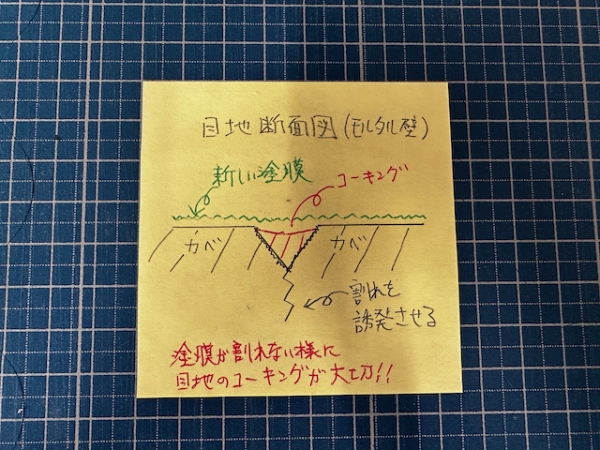 目地断面図(モルタル壁)
新しい塗膜
コーキング
カベ
カベ
割れを
誘発させる
塗膜が割れない様に
目地のコーキングが大切!!